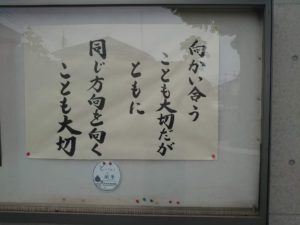 向かい合う
ことも大切だが
ともに
同じ方向を向く
ことも大切